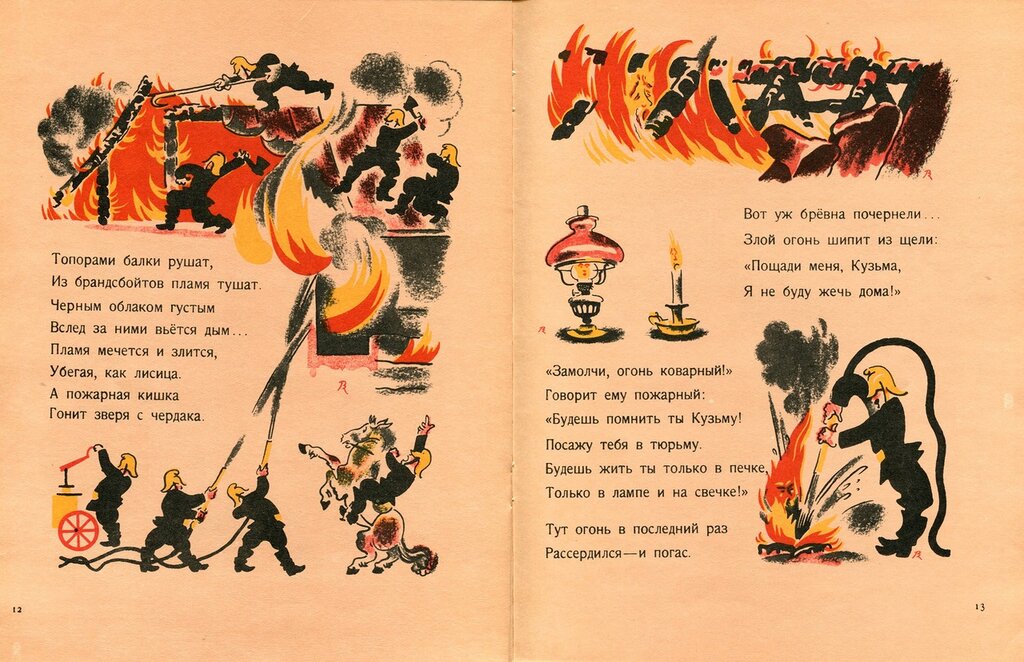 Топорами балки рушат,
Из брандсбойтов пламя тушат.
Черным облаком густым
Вслед за ними вьётся дым...
Пламя мечется и злится,
Убегая, как лисица.
А пожарная кишка
Гонит зверя с чердака.
12
Вот уж брёвна почернели...
Злой огонь шипит из щели:
«Пощади меня, Кузьма,
Я не буду жечь дома!»
«Замолчи, огонь коварный!»
Говорит ему пожарный:
«Будешь помнить ты Кузьму!
Посажу тебя в тюрьму.
Будешь жить ты только в печке,
Только в лампе и на свечке!»
Тут огонь в последний раз
Рассердился—и погас.
13